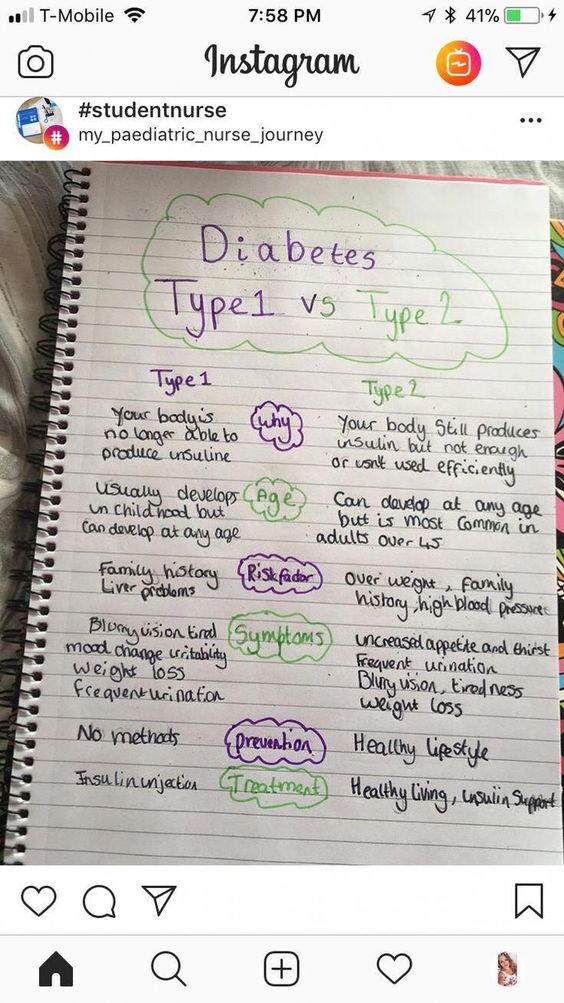 T-Mobile 7:58 PM 41%
Instagram
#studentnurse
my_paediatric_nurse_journey
Diabetes
Type 1 vs Type 2
Type 1
Type 2
Why
Your body is
no longer able to
produce insuline
Your body still produces
insulin but not enough
or isn't used efficiently
Age
Usually develops
in childhood but
can develop at any age
Can develop at any age
but is most common in
adults over 45
Risk factor
Family history
Liver problems
Over weight, family
history, high blood pressure
Symptoms
Blurry vision tired
mood change irritability
weight loss
frequent urination
increased appetite and thirst
Frequent urination
Blurry vision, tiredness
weight loss
prevention
No methods
Healthy lifestyle
Treatment
Insulin injection
Healthy living, insulin support